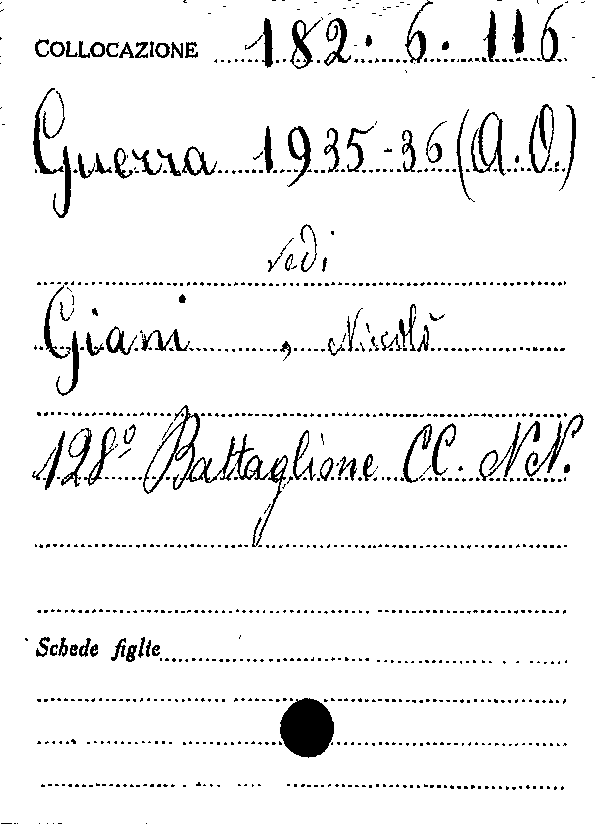 COLLOCAZIONE 182. 6. 116
Guerra 1935-36 (A.O.)
vedi
Giani , Niccolò
128º Battaglione CC. NN.
Schede figlie